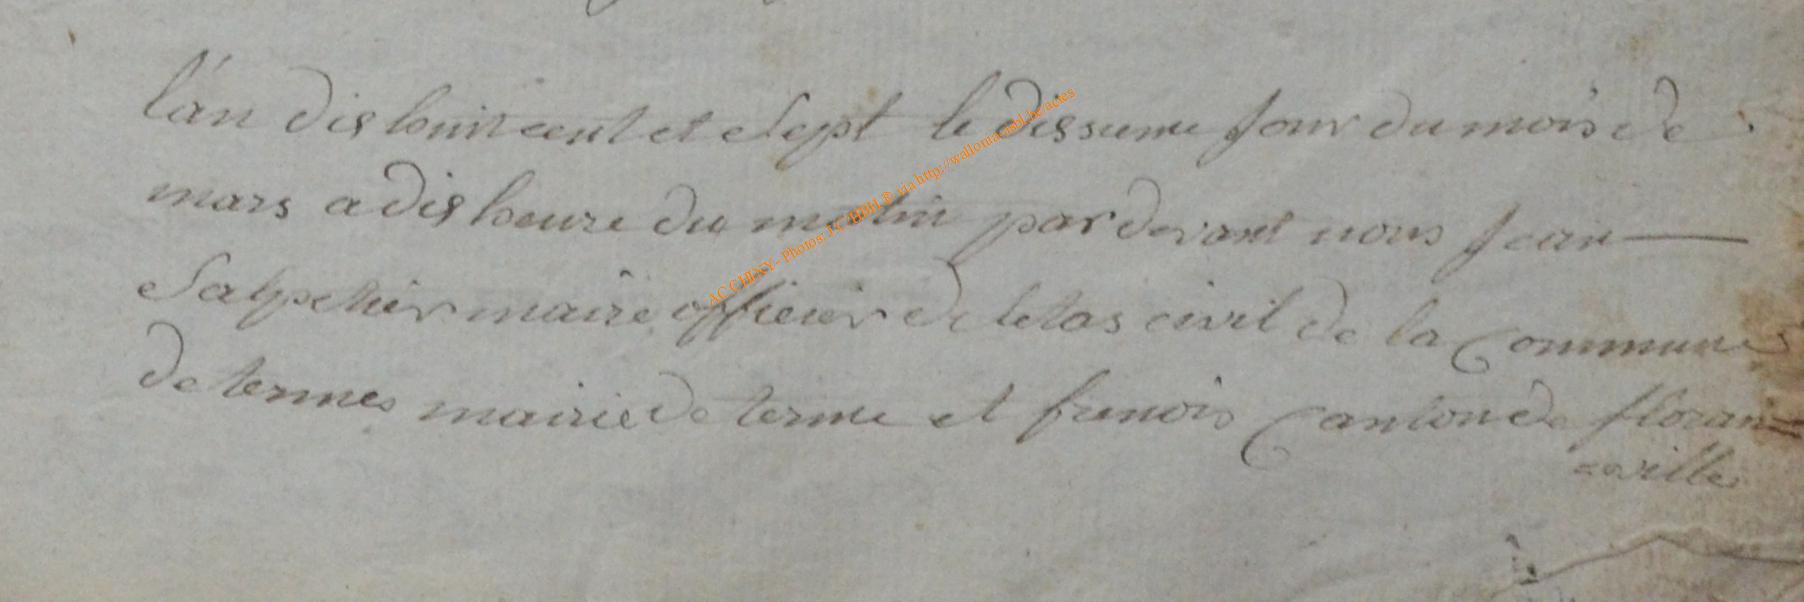 l'an dis huit cent et Sept le dissieme Jour du mois de
mars a dis heure du matin pardevant nous Jean
Salpetier maire officier de letas civil de la Commune
de termes mairie de terme et frenois Canton de floran=
=ville
AC CHINY - Photos: J-C HDH © via http://wallonia.asbl.be/actes